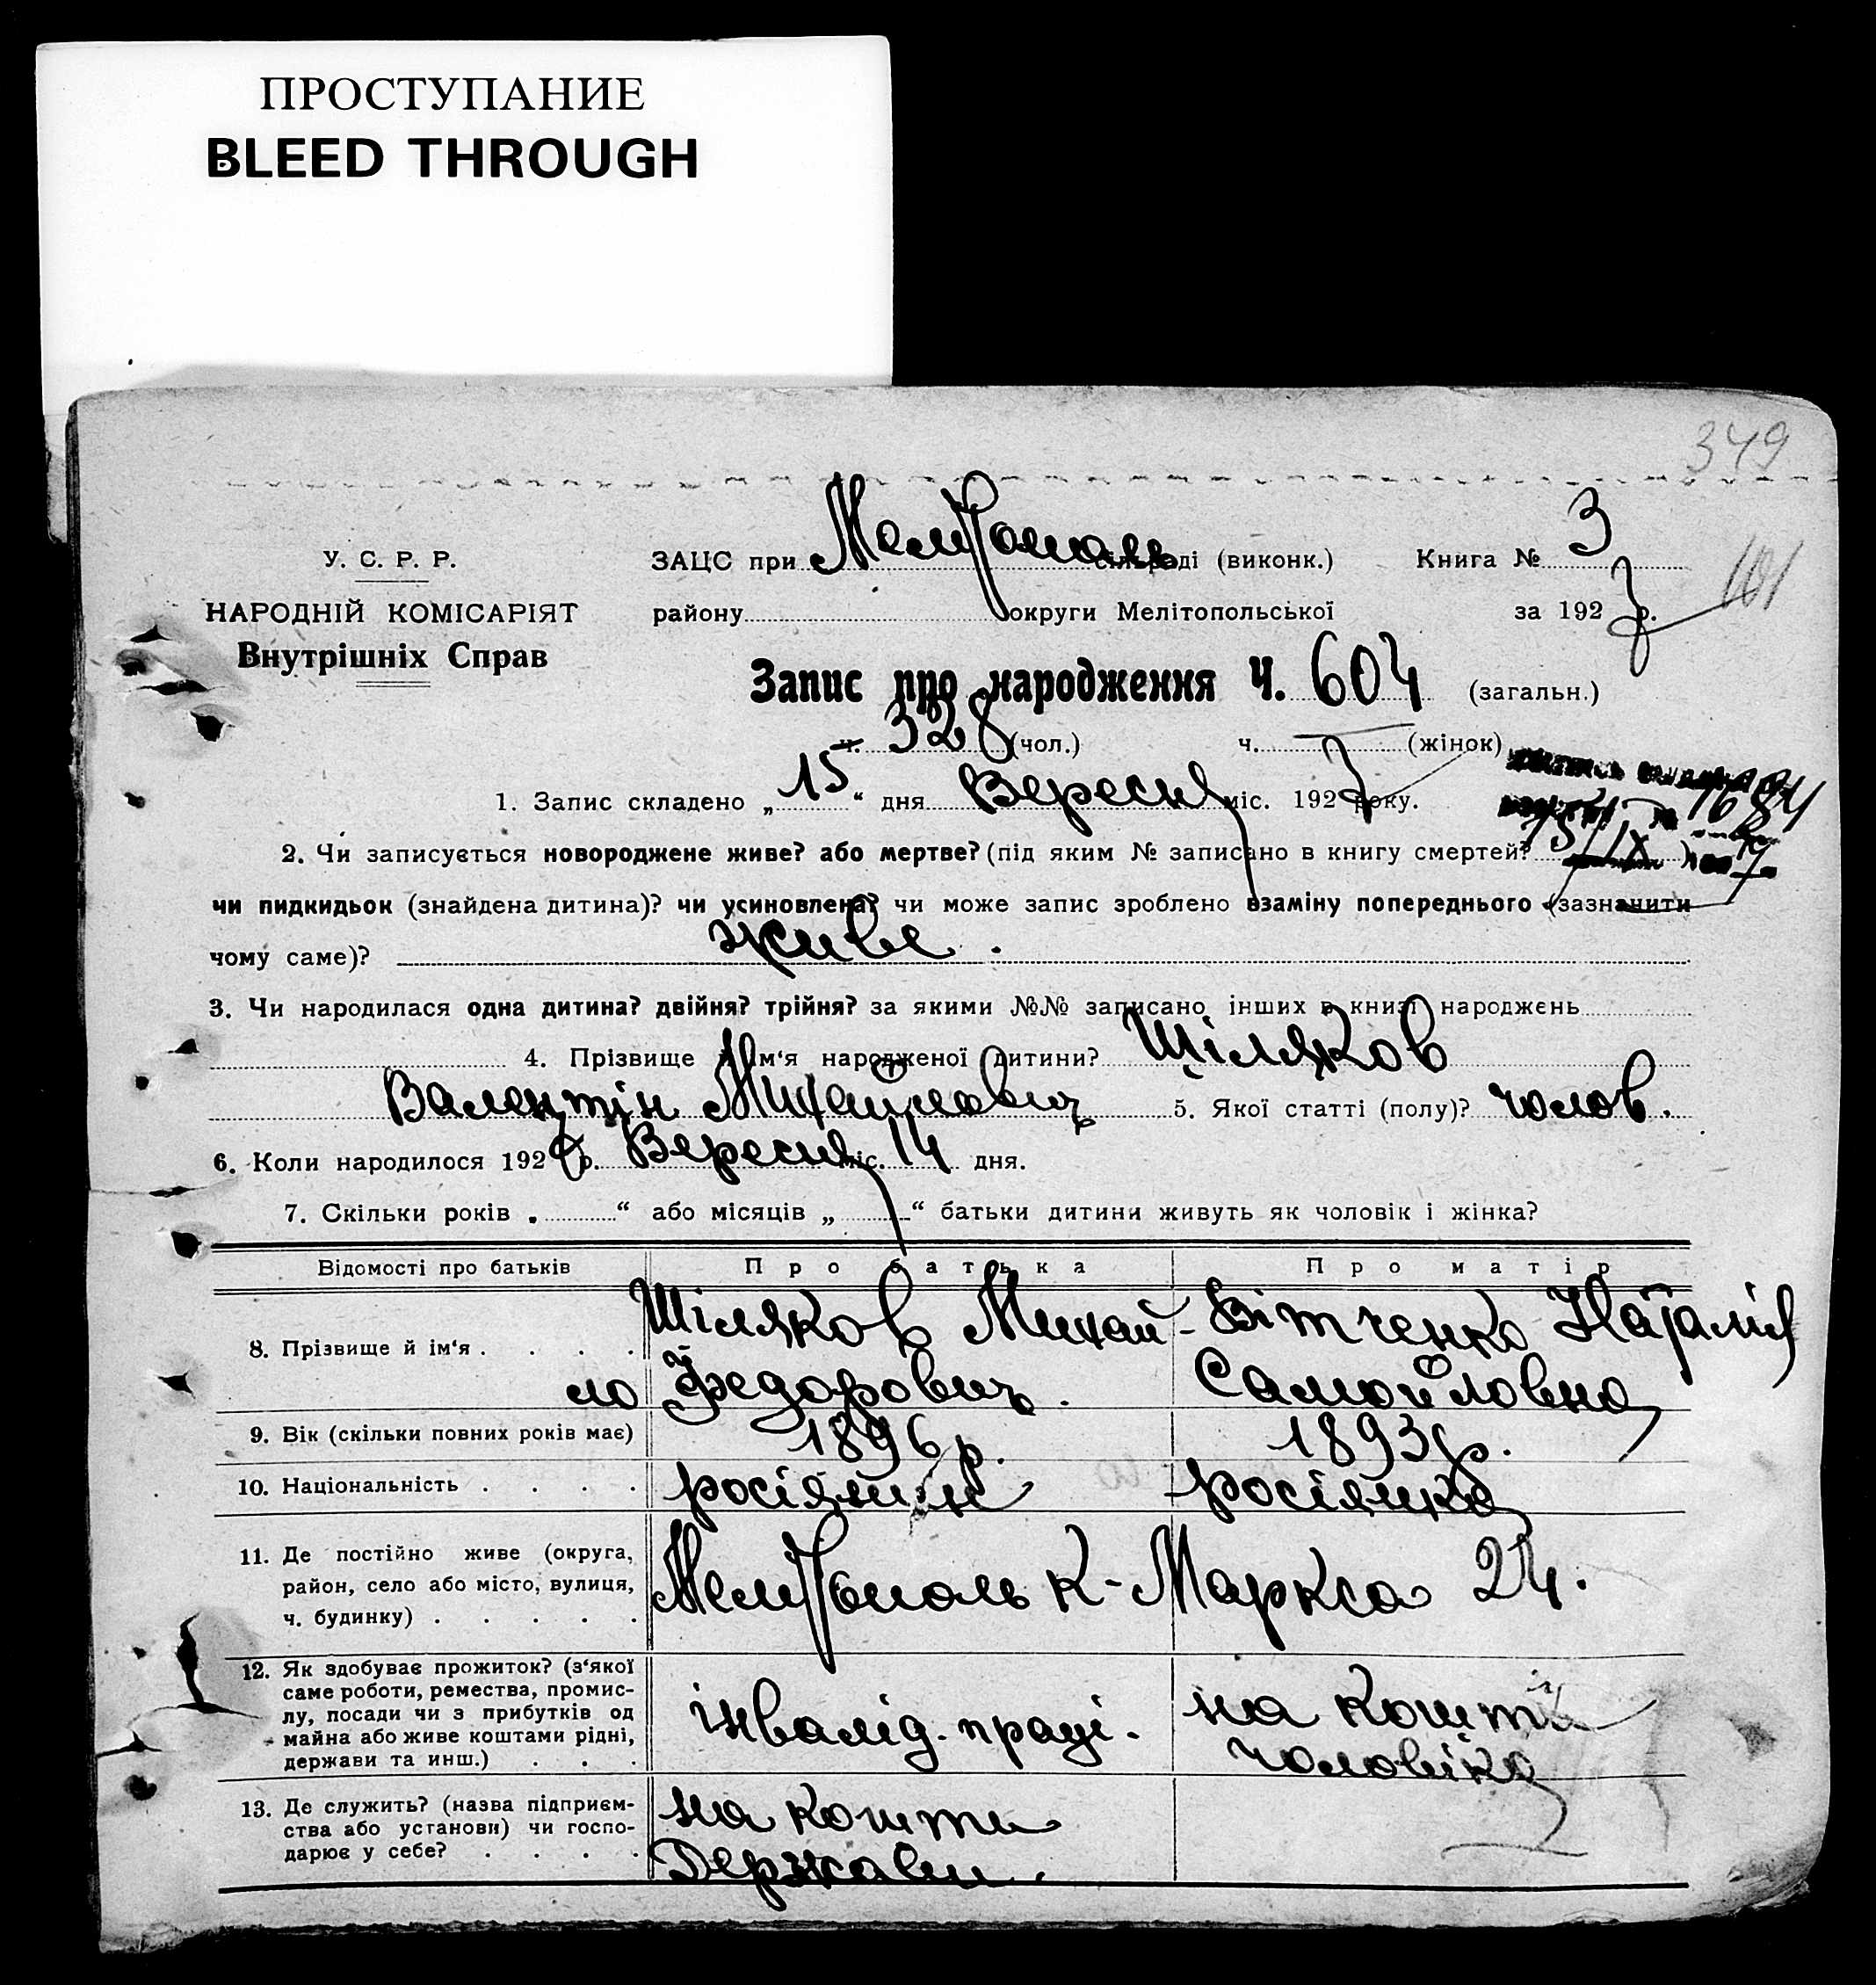 ПРОСТУПАНИЕ
BLEED THROUGH
349
У. С. Р. Р.
НАРОДНІЙ КОМІСАРІЯТ
Внутрішніх Справ
ЗАЦС при Мелітополь сільраді (виконк.) Книга № 3
101
району округи Мелітопольської за 1927 р.
Запис про народження Ч. 604 (загальн.)
ч. 328 (чол.) ч. — (жінок)
1. Запис складено „ 15 “ дня Вересня міс. 1927 року.
2. Чи записується новороджене живе? або мертве? (під яким № записано в книгу смертей? )
чи пидкидьок (знайдена дитина)? чи усиновлена? чи може запис зроблено взаміну попереднього (зазначити
чому саме)? живе.
3. Чи народилася одна дитина? двійня? трійня? за якими №№ записано інших в книзі народжень
4. Прізвище й ім'я народженої дитини? Шіляков
Валентін Михайлович 5. Якої статті (полу)? чолов.
6. Коли народилося 1927 р. Вересня міс. 14 дня.
7. Скільки років „ “ або місяців „ “ батьки дитини живуть як чоловік і жінка?
Відомості про батьків Про батька Про матір
8. Прізвище й ім'я . . . . Шіляков Михай-ло Федорович. Вітченко Наталія Самойловна
9. Вік (скільки повних років має) 1896 р. 1893 р.
10. Національність . . . . росіянин росіянка
11. Де постійно живе (округа,
район, село або місто, вулиця,
ч. будинку) . . . . . Мелітополь К-Маркса 24.
12. Як здобуває прожиток? (з'якої
саме роботи, ремества, промис-
лу, посади чи з прибутків од
майна або живе коштами рідні,
держави та инш.) . . . інвалід. праці. на кошти чоловіка
13. Де служить? (назва підприєм-
ства або установи) чи госпо-
дарює у себе? . . . . на кошти Держави.